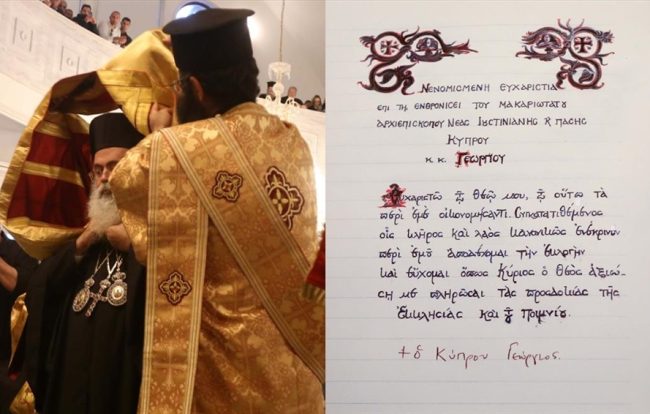 Νενομισμένη εὐχαριστία
ἐπὶ τῇ ἐνθρονίσει τοῦ Μακαριωτάτου
ἀρχιεπισκόπου Νέας Ἰουστινιανῆς κ πάσης
Κύπρου
κ.κ. Γεωργίου
Εὐχαριστῶ τῷ Θεῷ μου, τῷ οὕτω τὰ
περὶ ἐμοῦ οἰκονομήσαντι. Συγκατατιθέμενος
οἷς κλῆρος καὶ λαὸς κανονικῶς ἐνέκρινεν
περὶ ἐμοῦ ἀποδέχομαι τὴν ἐκλογὴν
καὶ εὔχομαι ὅπως Κύριος ὁ Θεὸς ἀξιώ-
σῃ με πληρῶσαι τὰς προσδοκίας τῆς
Ἐκκλησίας καὶ τοῦ Ποιμνίου.
+ ὁ Κύπρου Γεώργιος.